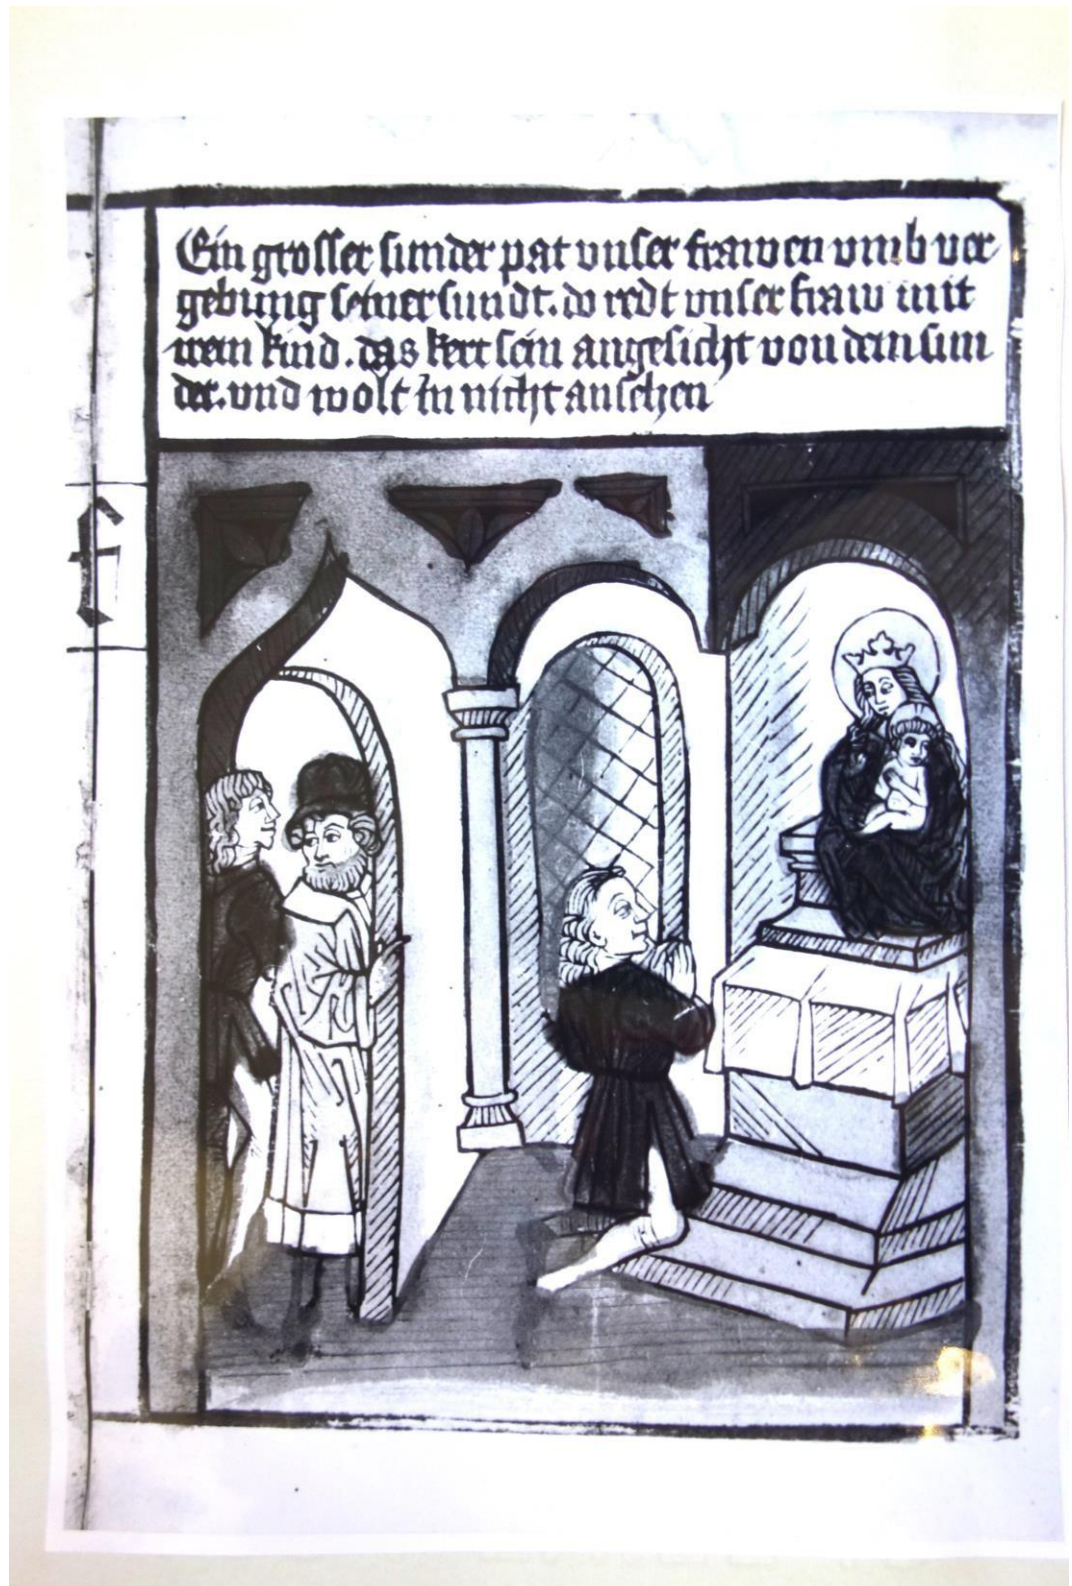 Ein grosser sunder pat vnser frawen vmb ver
gebung seiner sundt. do redt vnser fraw mit
irem kind. das kert sein angesicht von dem sun
der. vnd wolt in nicht ansehen
f